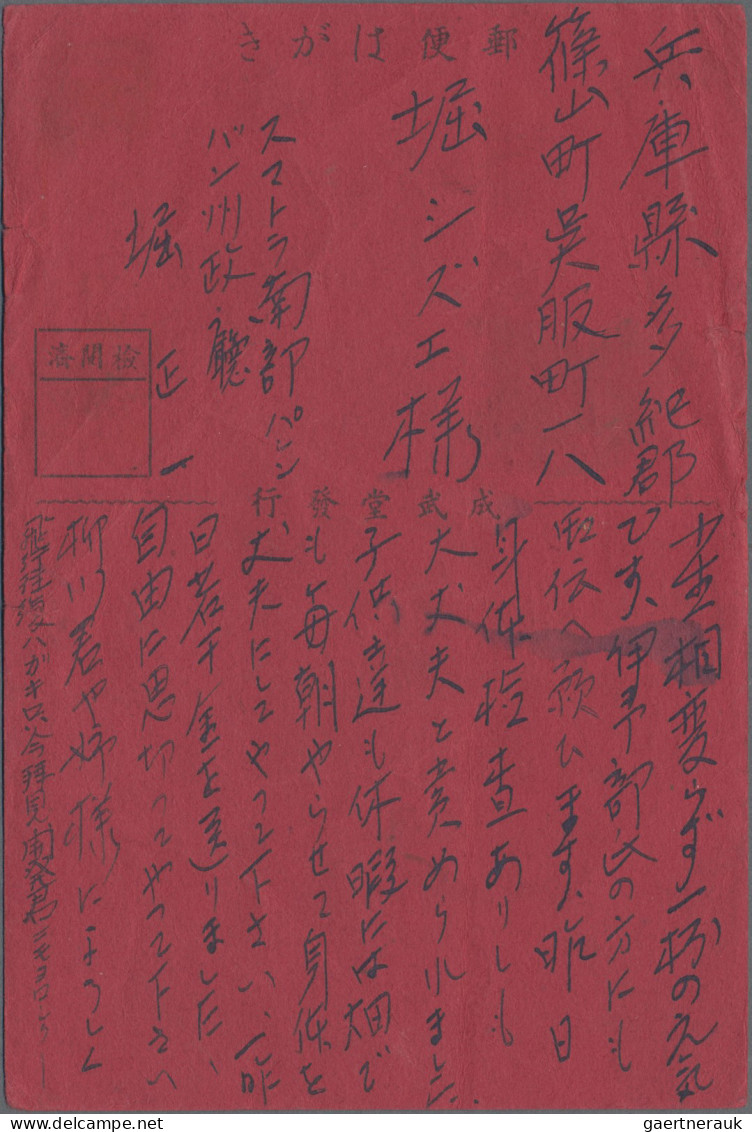 郵便はがき
兵庫縣多紀郡
篠山町呉服町一八
堀シズエ様
スマトラ南部パレン
バン州政廳
堀正一
検閲濟
成武堂發行
相変らず一杯の元気
です、伊予部氏の方にも
伝へ願ひます、昨日
身体検査ありしも
大丈夫と責められました
子供達も休暇には畑で
も毎朝やらせて身体を
丈夫にしてやって下さい、一昨
日若干金を送りました、
自由に思切ってやって下さい
柳川君や姉様によろしく
飛行往復ハガキ只今拝見
gaertnerauk